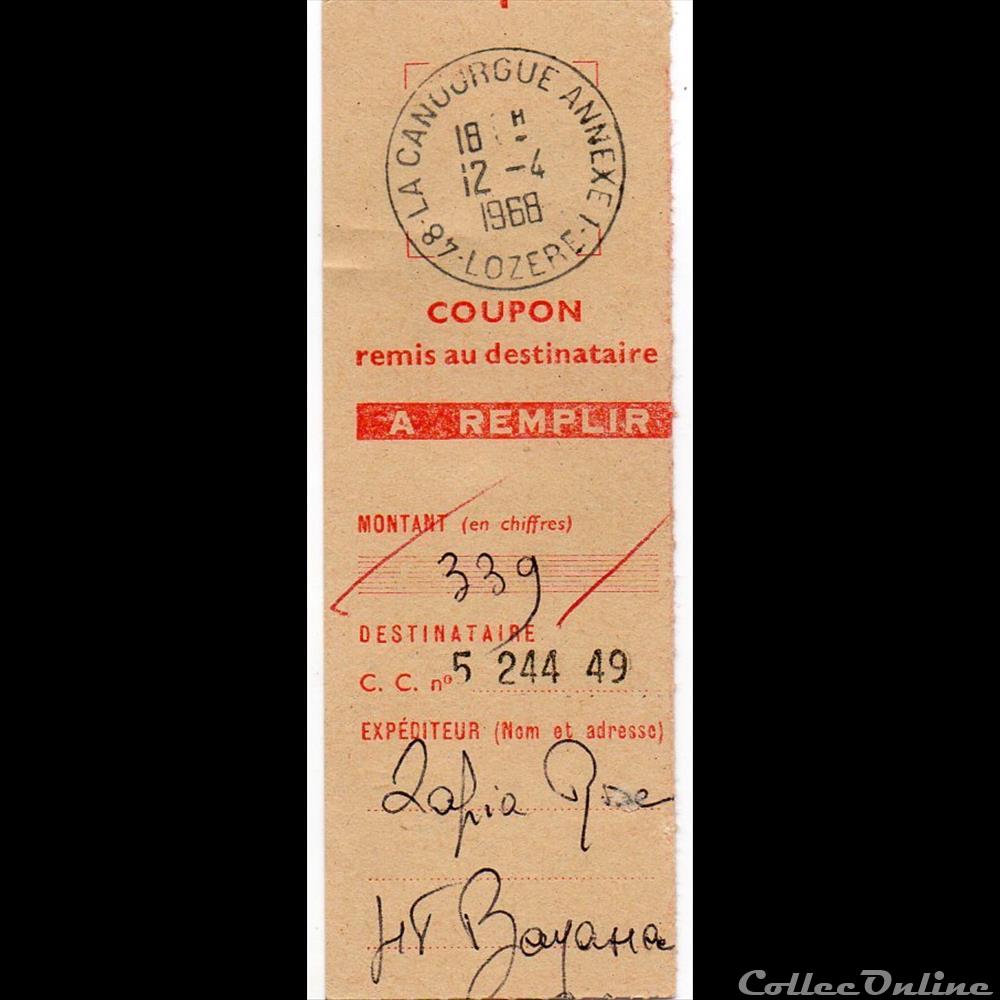 48-LA CANOURGUE ANNEXE 1-LOZERE-
18 H
12 -4
1968
COUPON
remis au destinataire
A REMPLIR
MONTANT (en chiffres)
339
DESTINATAIRE
C. C. nº 5 244 49
EXPÉDITEUR (Nom et adresse)
Zapia
HT
ColleeOnline